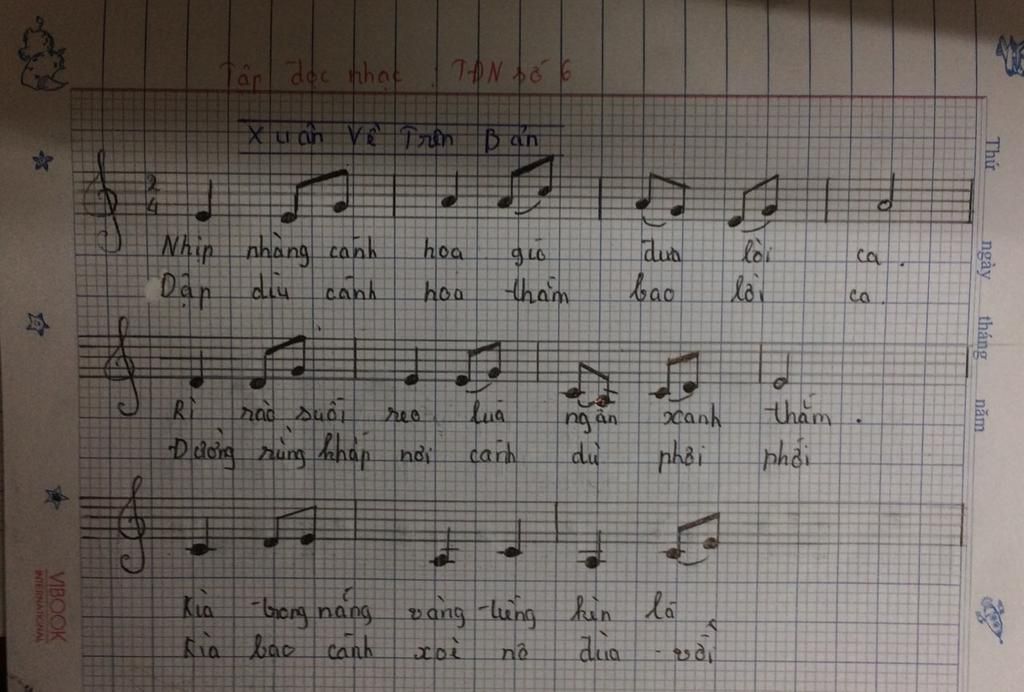 Tập đọc nhạc : TĐN số 6
Xuân Về Trên Bản
2
4
Nhịp nhàng cánh hoa gió đưa lời ca.
Dập dìu cánh hoa thắm bao lời ca.
Rì rào suối reo lúa ngàn xanh thắm.
Đường rừng khắp nơi cánh dù phơi phới
Kìa trong nắng vàng từng kìn lá
Kìa bao cánh xoè nô đùa với
Thứ ngày tháng năm
VIBOOK
INTERNATIONAL